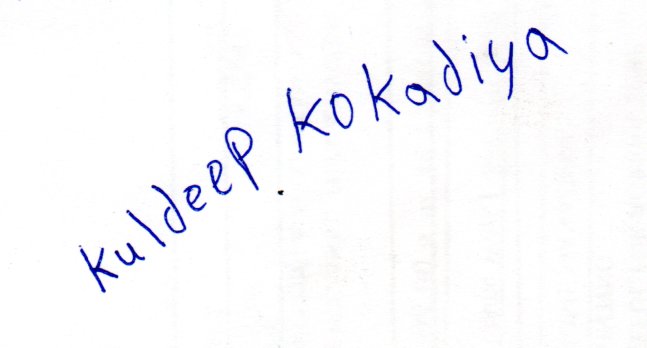 kuldeep kokadiya